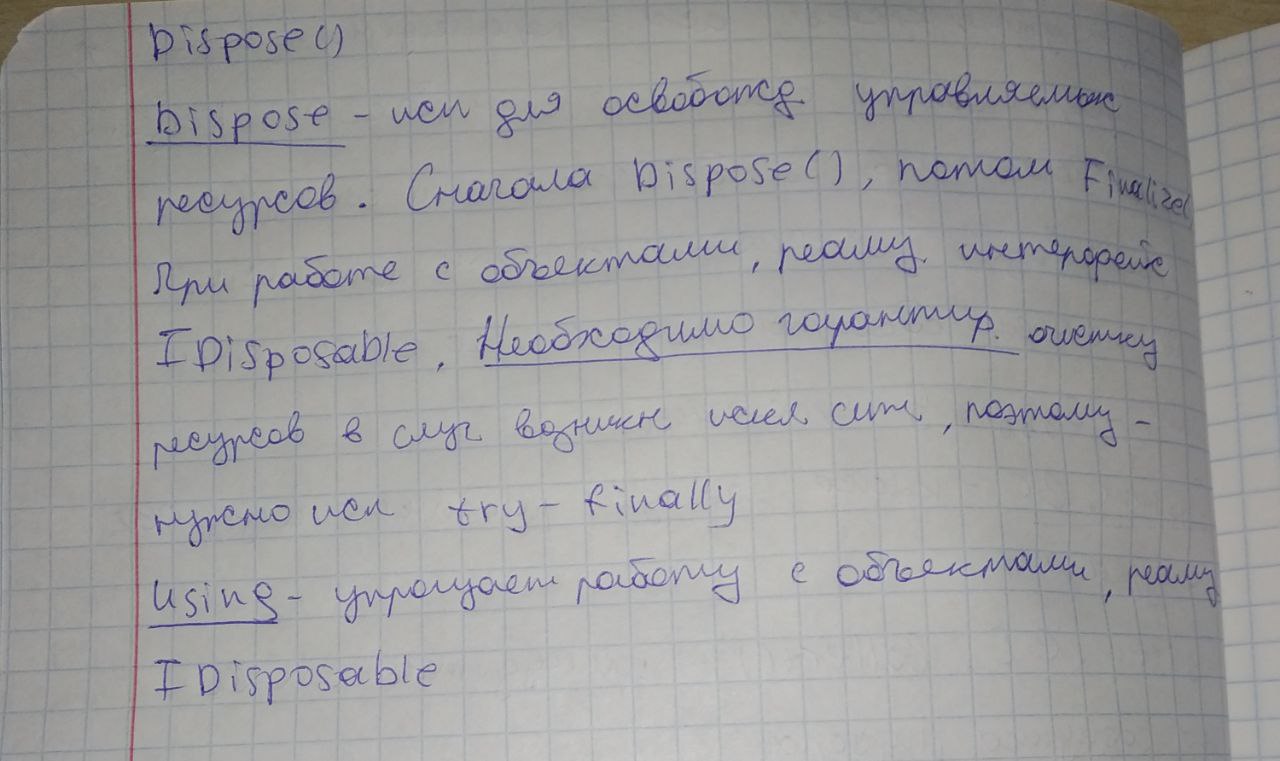 Dispose()
Dispose - исп для освобожд управляемых
ресурсов. Сначала Dispose(), потом Finalize(
При работе с объектами, реализ. интерфейс
IDisposable, Необходимо гарантир. очистку
ресурсов в случ возникн искл сит, поэтому -
нужно исп try - finally
Using - упрощает работу с объектами, реализ
IDisposable